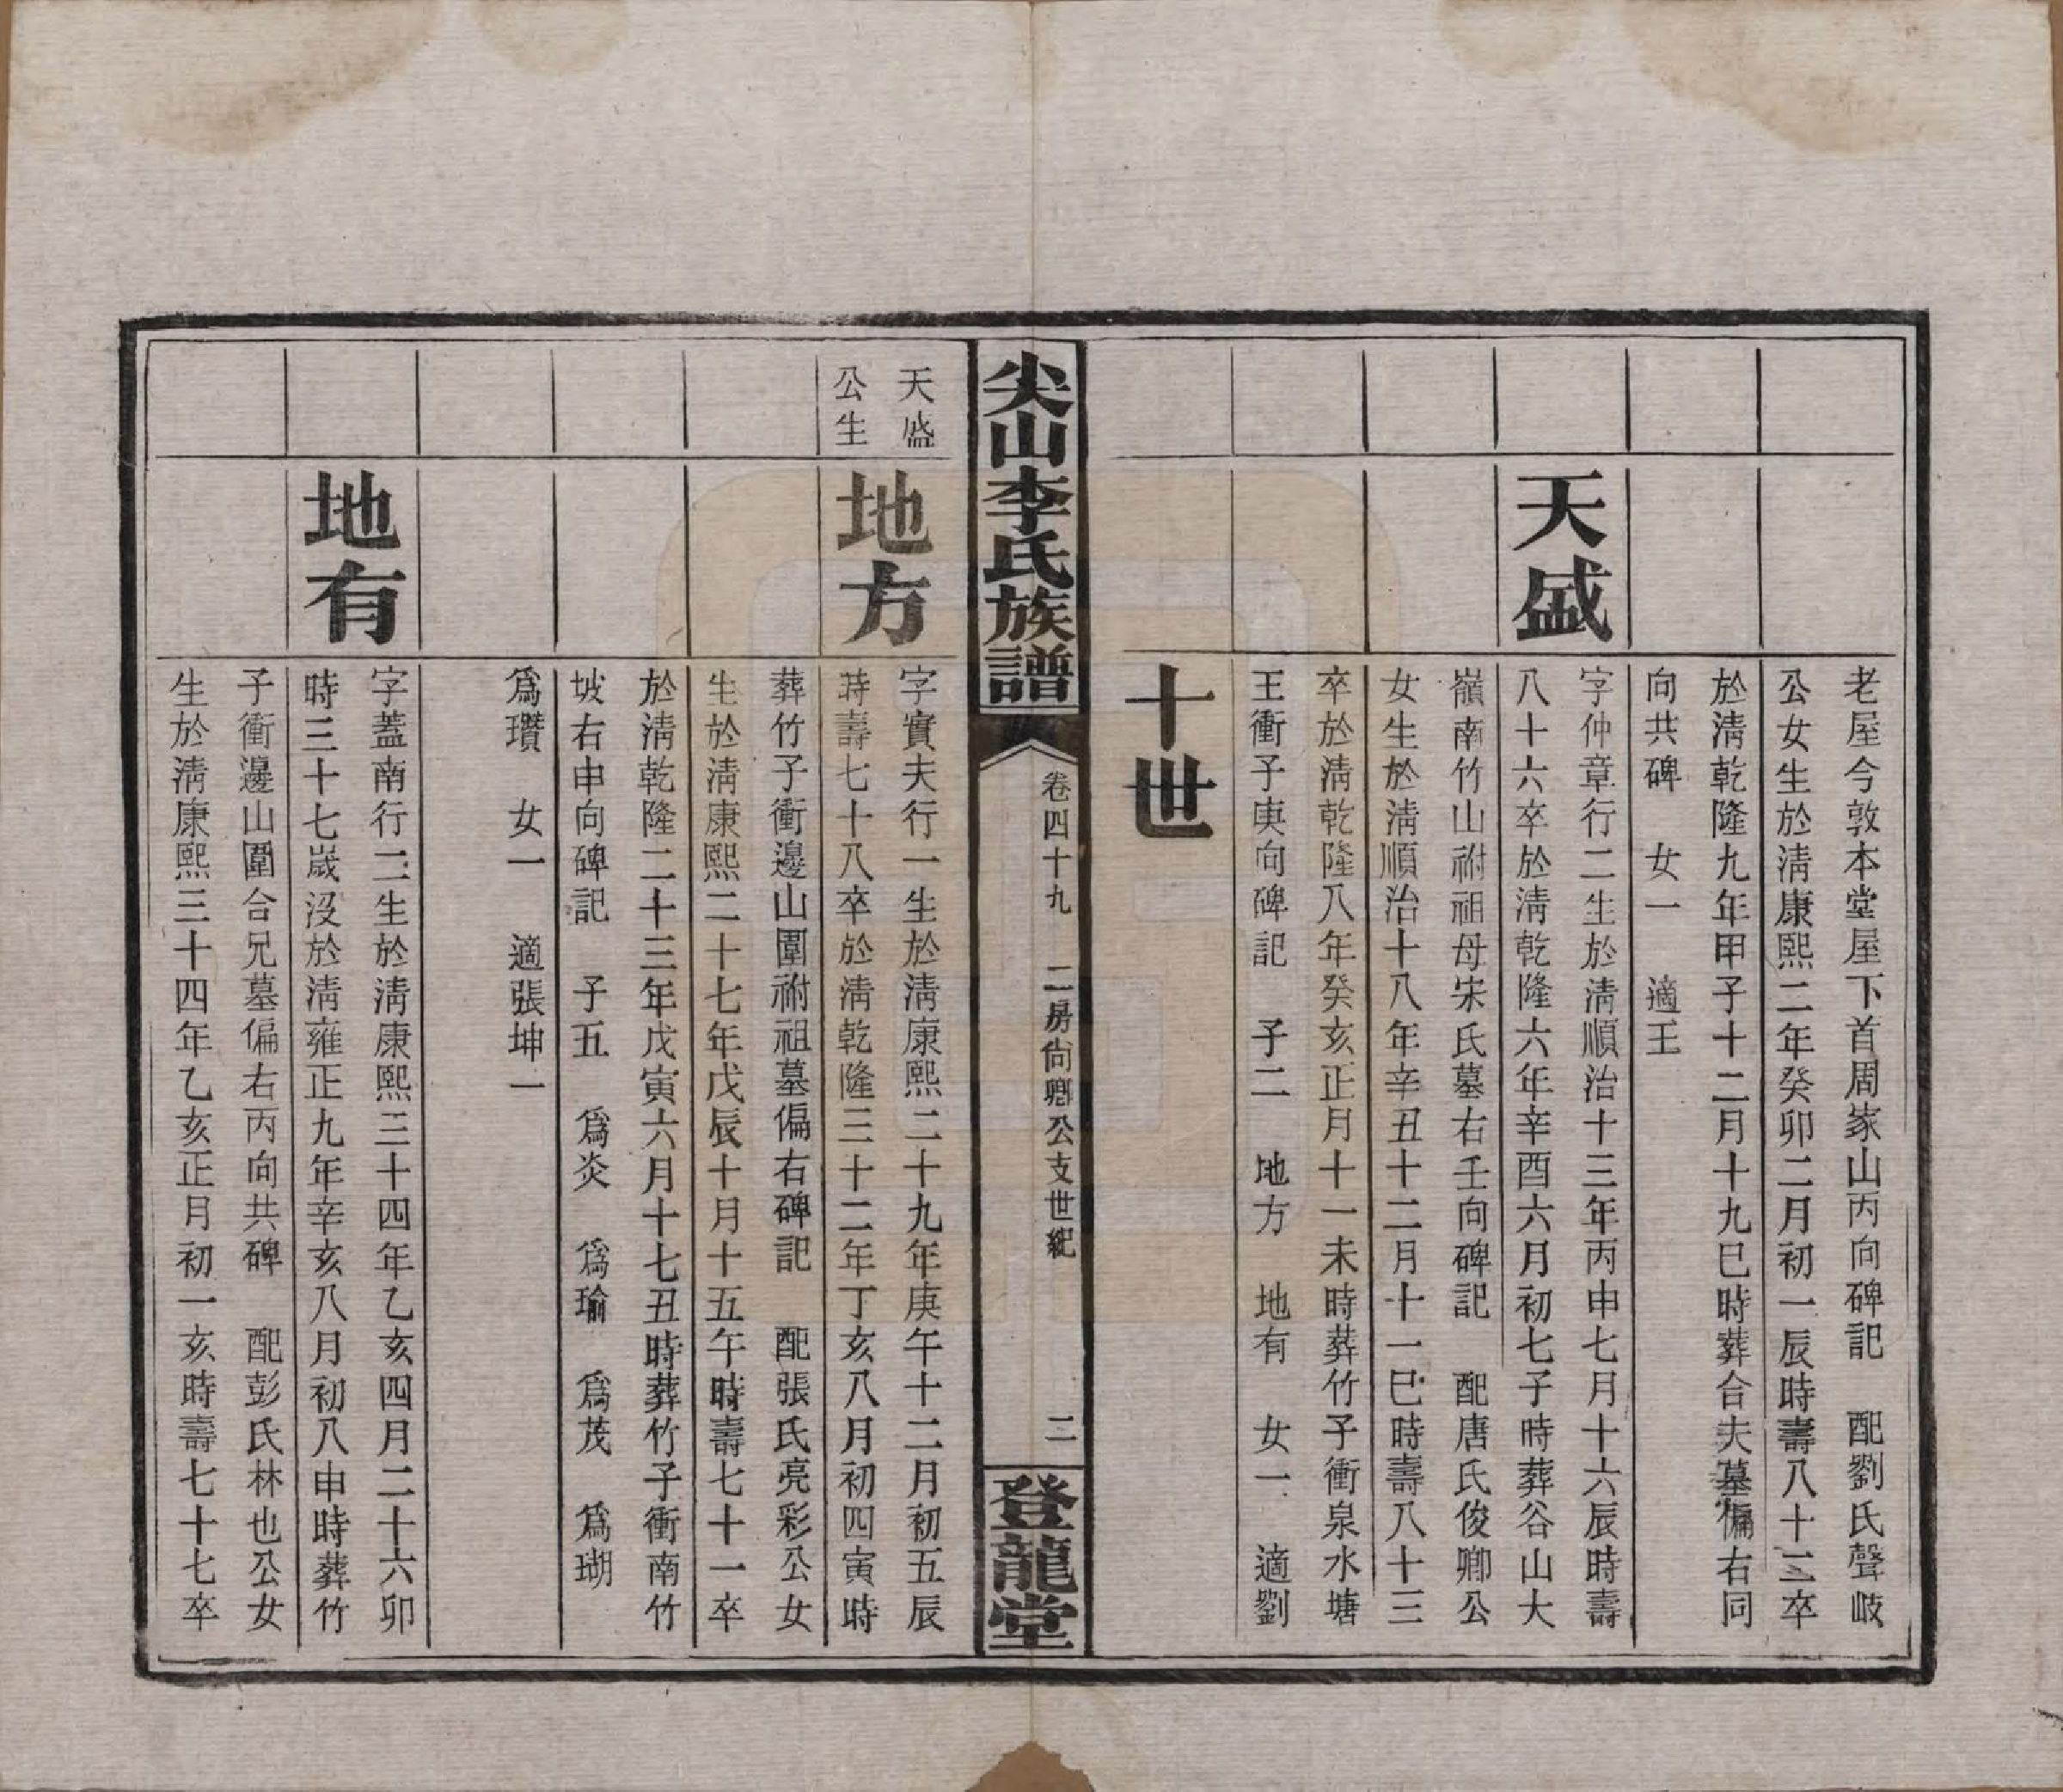 老屋今敦本堂屋下首周家山丙向碑記　配劉氏聲岐
公女生於淸康熙二年癸卯二月初一辰時壽八十三卒
於淸乾隆九年甲子十二月十九巳時葬合夫墓偏右同
向共碑　女一　適王
天盛
字仲章行二生於淸順治十三年丙申七月十六辰時壽
八十六卒於淸乾隆六年辛酉六月初七子時葬谷山大
嶺南竹山祔祖母宋氏墓右壬向碑記　配唐氏俊卿公
女生於淸順治十八年辛丑十二月十一巳時壽八十三
卒於淸乾隆八年癸亥正月十一未時葬竹子衝泉水塘
王衝子庚向碑記　子二　地方　地有　女一　適劉
十世
尖山李氏族譜
卷四十九　二房尙卿公支世紀
二
登龍堂
天盛
公生
地方
字實夫行一生於淸康熙二十九年庚午十二月初五辰
時壽七十八卒於淸乾隆三十二年丁亥八月初四寅時
葬竹子衝邊山圍祔祖墓偏右碑記　配張氏亮彩公女
生於淸康熙二十七年戊辰十月十五午時壽七十一卒
於淸乾隆二十三年戊寅六月十七丑時葬竹子衝南竹
坡右申向碑記　子五　爲炎　爲瑜　爲茂　爲瑚
爲瓚　女一　適張坤一
地有
字蓋南行二生於淸康熙三十四年乙亥四月二十六卯
時三十七歲沒於淸雍正九年辛亥八月初八申時葬竹
子衝邊山圍合兄墓偏右丙向共碑　配彭氏林也公女
生於淸康熙三十四年乙亥正月初一亥時壽七十七卒